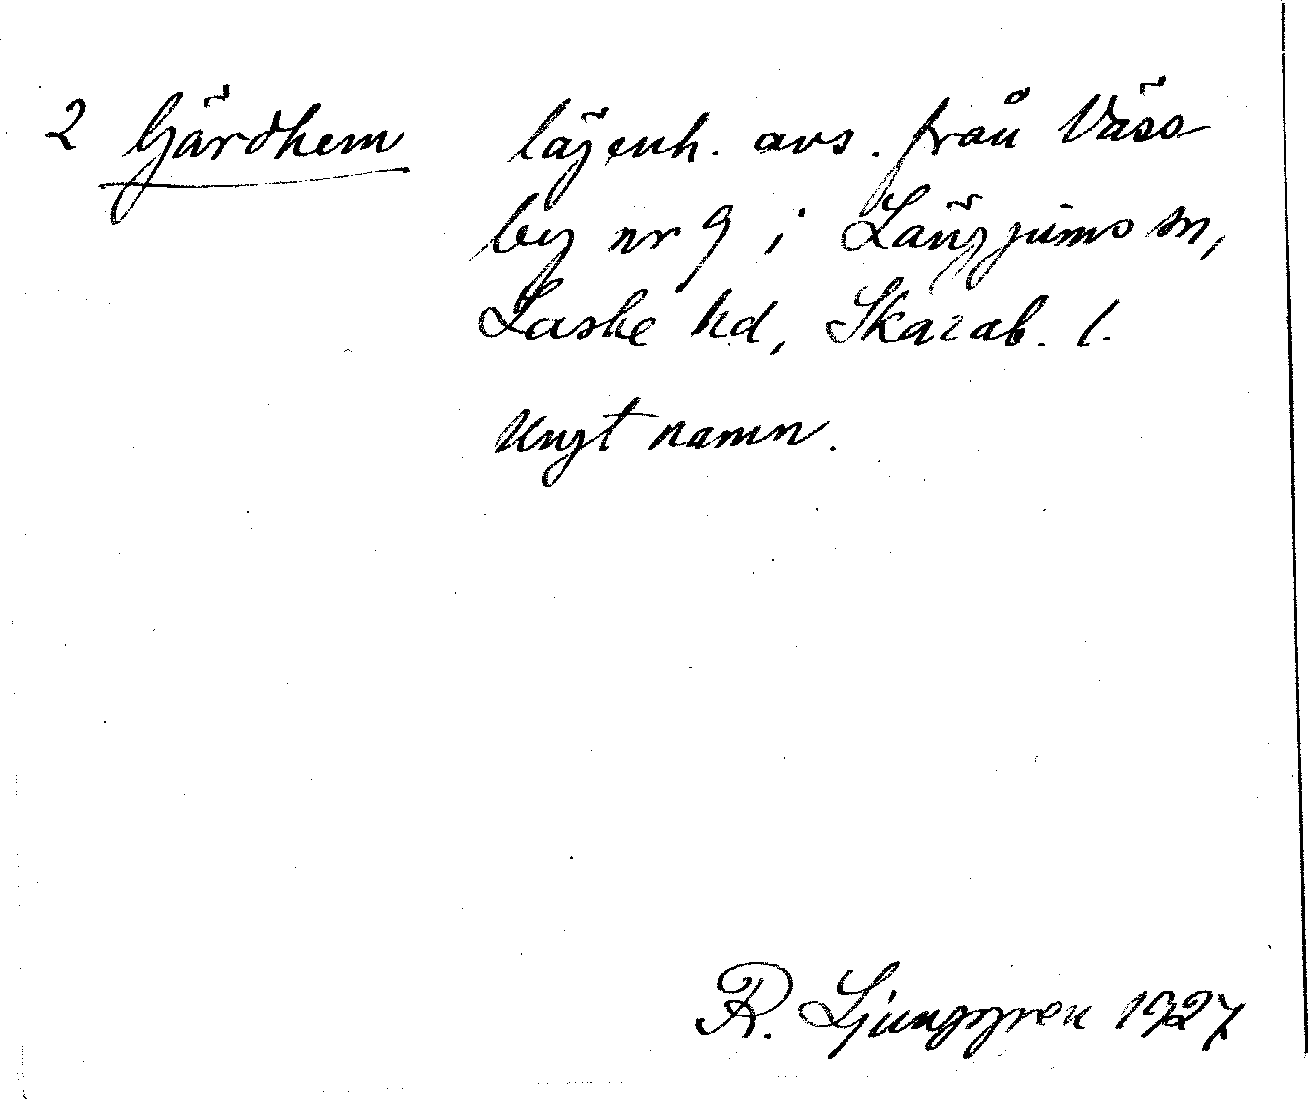 2 Gärdhem lägenh. avs. från Väss
by nr 9 i Längjums sn,
Laske hd, Skarab. l.
Ungt namn.
R. Ljunggren 1927